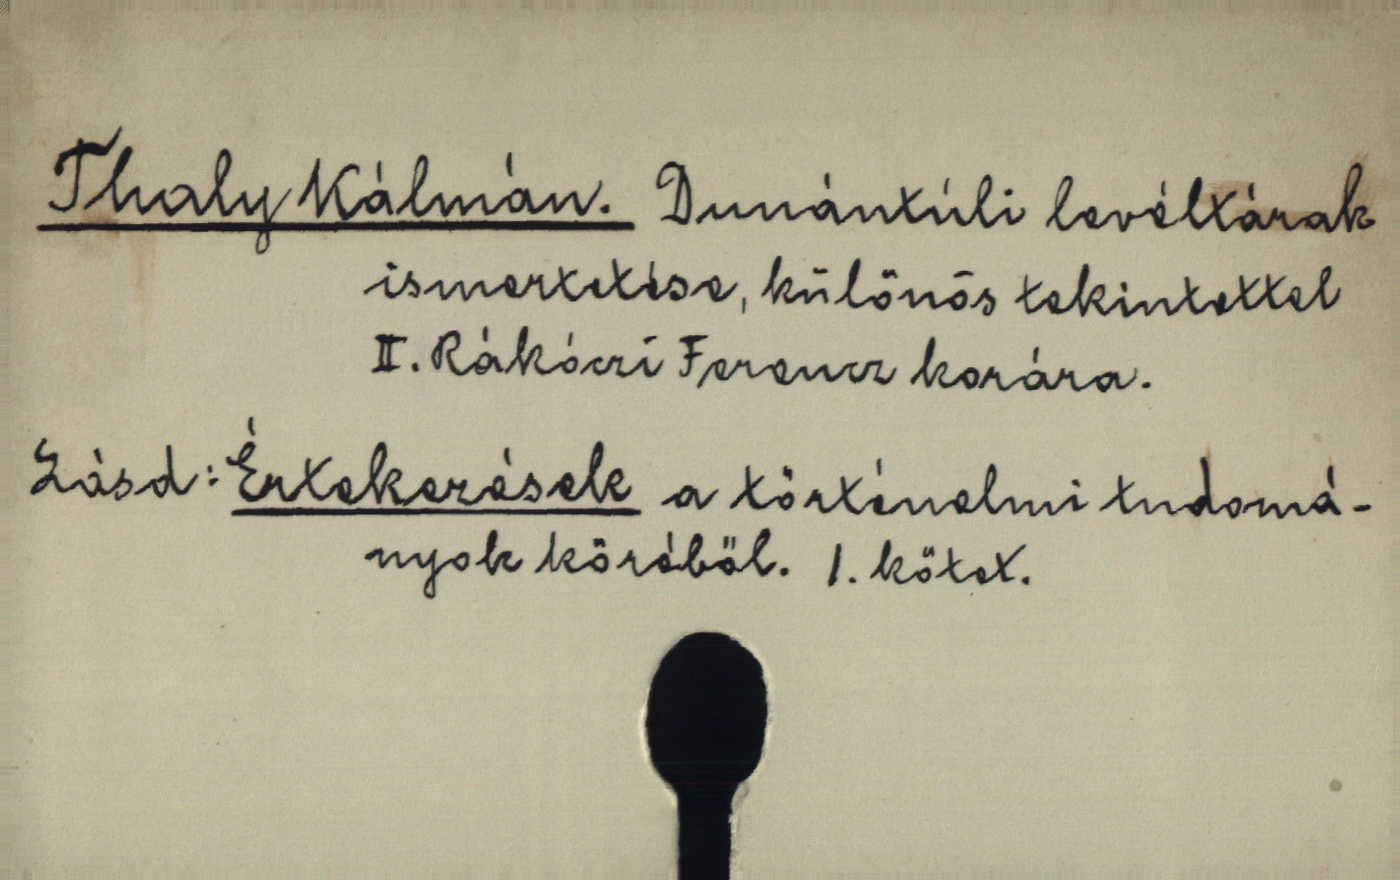 Thaly Kálmán. Dunántúli levéltárak
ismertetése, különös tekintettel
II. Rákóczi Ferencz korára.
Lásd: Értekezések a történelmi tudomá-
nyok köréből. I. kötet.